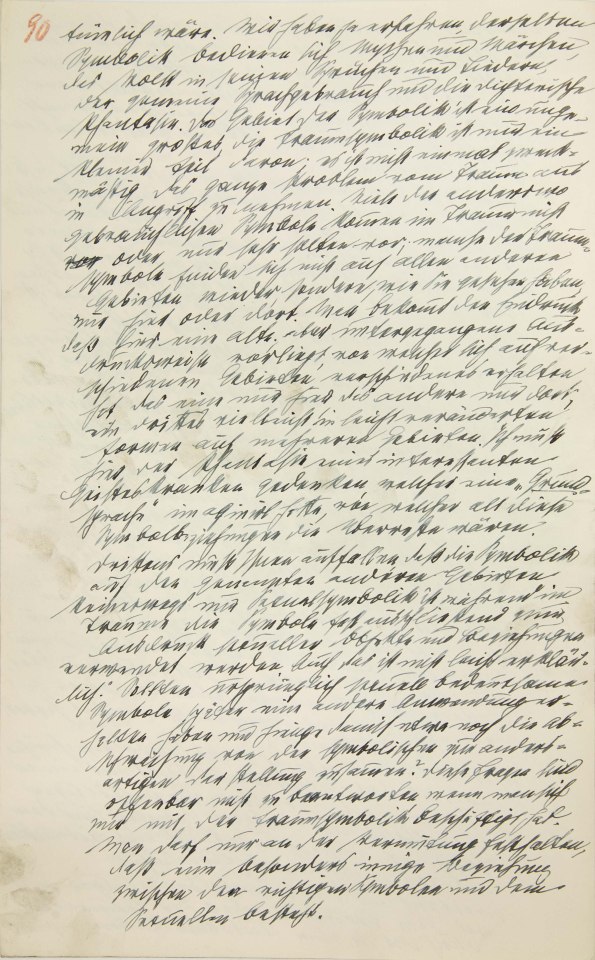 90
tümlich wäre. Wir haben ja erfahren, derselben
Symbolik bedienen sich Mythen und Märchen,
das Volk in seinen Sprüchen und Liedern,
der gemeine Sprachgebrauch und die dichterische
Phantasie. Das Gebiet der Symbolik ist ein unge-
mein großes, die Traumsymbolik ist nur ein
kleiner Teil davon; es ist nicht einmal zweck-
mäßig das ganze Problem vom Traum aus
in Angriff zu nehmen. Viele der anderswo
gebräuchlichen Symbole kommen im Traum nicht
vor oder nur sehr selten vor, manche der Traum-
symbole finden sich nicht auf allen anderen
Gebieten wieder, sondern, wie Sie gesehen haben,
nur hier oder dort. Man bekommt den Eindruck
daß hier eine alte, aber untergegangene Aus-
drucksweise vorliegt, von welcher sich auf ver-
schiedenen Gebieten verschiedenes erhalten
hat, das eine nur hier, das andere nur dort,
ein drittes vielleicht in leicht veränderten
Formen auf mehreren Gebieten. Ich muß
hier der Phantasie eines interessanten
Geisteskranken gedenken, welcher eine „Grund-
sprache" imaginirt hatte, von welcher alle diese
Symbolbeziehungen die Überreste wären.
Drittens muß Ihnen auffallen, daß die Symbolik
auf den genannten anderen Gebieten
keineswegs nur Sexualsymbolik ist, während im
Traume die Symbole fast ausschließend zum
Ausdruck sexueller Objekte und Beziehungen
verwendet werden. Auch das ist nicht leicht erklär-
lich. Sollten ursprünglich sexuell bedeutsame
Symbole später eine andere Anwendung er-
halten haben und hinge damit etwa noch die Ab-
schwächung von der symbolischen zur anders-
artigen Darstellung zusammen? Diese Fragen sind
offenbar nicht zu beantworten, wenn man sich
nur mit der Traumsymbolik beschäftigt hat.
Man darf nur an der Vermutung festhalten,
daß eine besonders innige Beziehung
zwischen den richtigen Symbolen und dem
Sexuellen besteht.